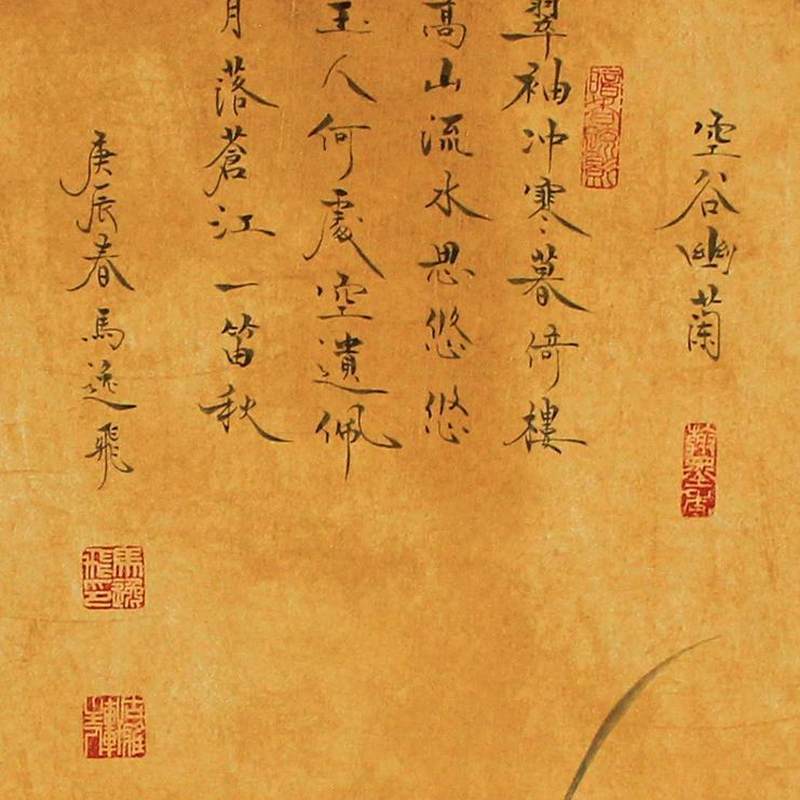 空谷幽蘭
翠袖冲寒暮倚樓
高山流水思悠悠
玉人何處空遺佩
月落蒼江一笛秋
庚辰春馬逸飛
馬逸飛印